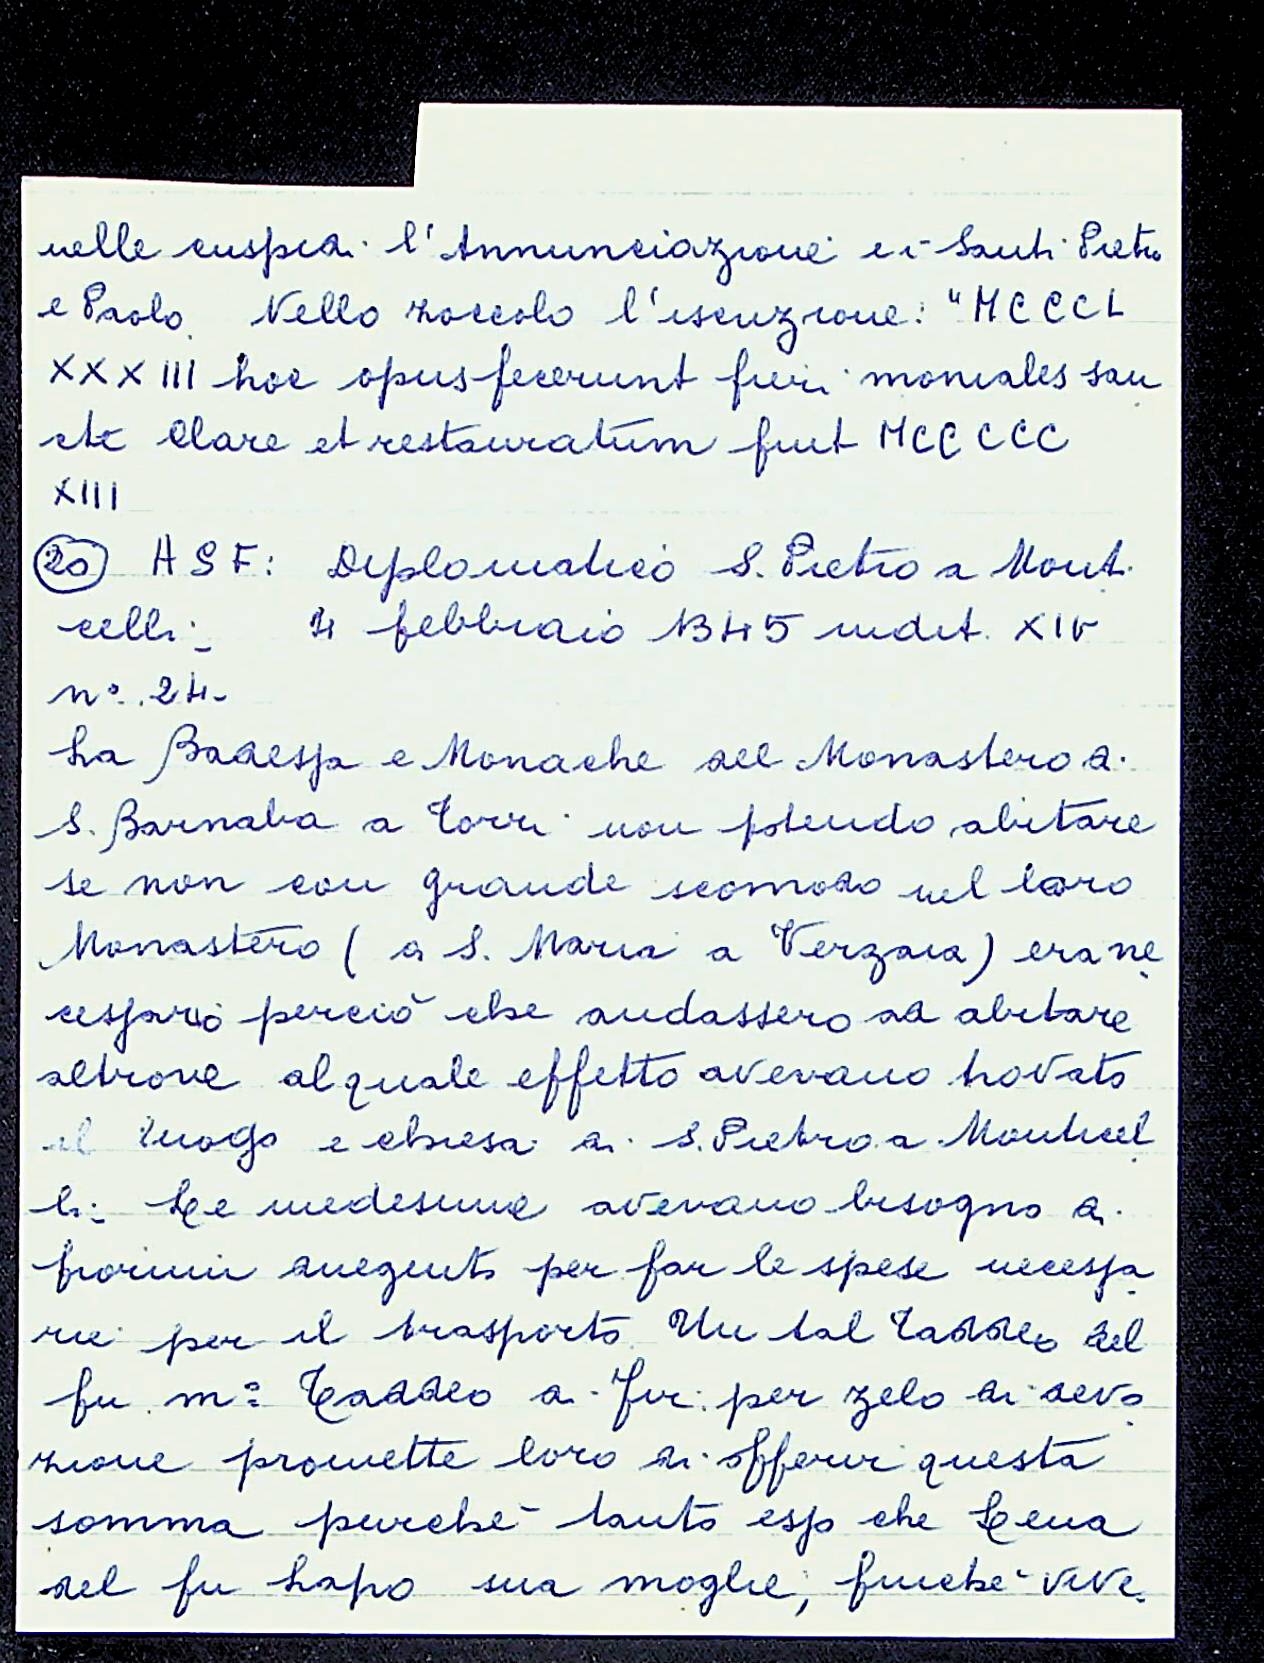 nelle cuspidi l'Annunciazione e i Santi Pietro
e Paolo. Nello zoccolo l'iscrizione: "MCCCL
XXXIII hoc opus fecerunt fieri moniales san
cte Clare et restauratum fuit MCCCCC
XIII
(20) ASF: Diplomatico S. Pietro a Monti
celli - 4 febbraio 1345 indit. XIV
n°. 24 -
La Badessa e Monache del Monastero di
S. Barnaba a Torri non potendo abitare
se non con grande scomodo nel loro
Monastero (a S. Maria a Verzaia) era ne
cessario perciò che andassero ad abitare
altrove al quale effetto avevano trovato
il luogo e chiesa di S. Pietro a Monticel
li. Le medesime avevano bisogno di
fiorini duegento per far le spese necessa
rie per il trasporto. Un tal Taddeo del
fu m° Taddeo di Fir. per zelo di devo
zione promette loro di offerir questa
somma purché tanto esso che Lena
del fu Lapo sua moglie, finché vive